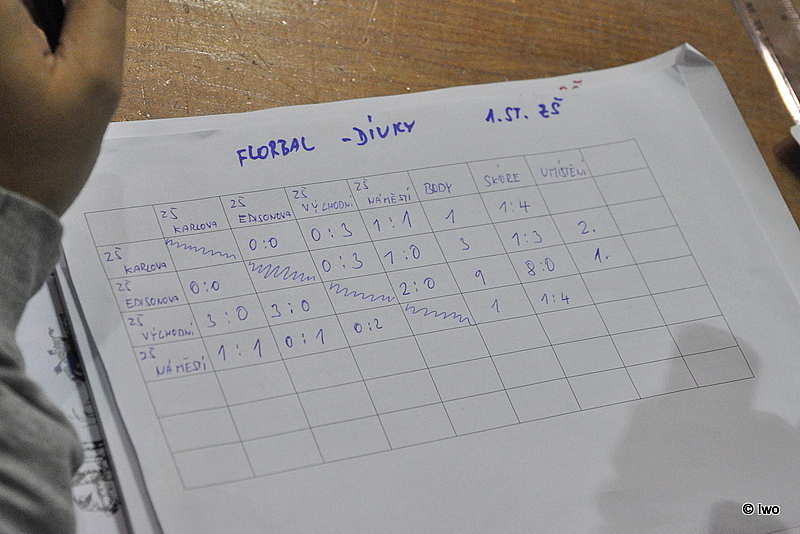 FLORBAL - DÍVKY 1.ST. ZŠ
ZŠ KARLOVA ZŠ EDISONOVA ZŠ VÝCHODNÍ ZŠ NÁMĚSTÍ BODY SKÓRE UMÍSTĚNÍ
ZŠ KARLOVA 0:0 0:3 1:1 1 1:4
ZŠ EDISONOVA 0:0 0:3 1:0 3 1:3 2.
ZŠ VÝCHODNÍ 3:0 3:0 2:0 9 8:0 1.
ZŠ NÁMĚSTÍ 1:1 0:1 0:2 1 1:4
© Iwo